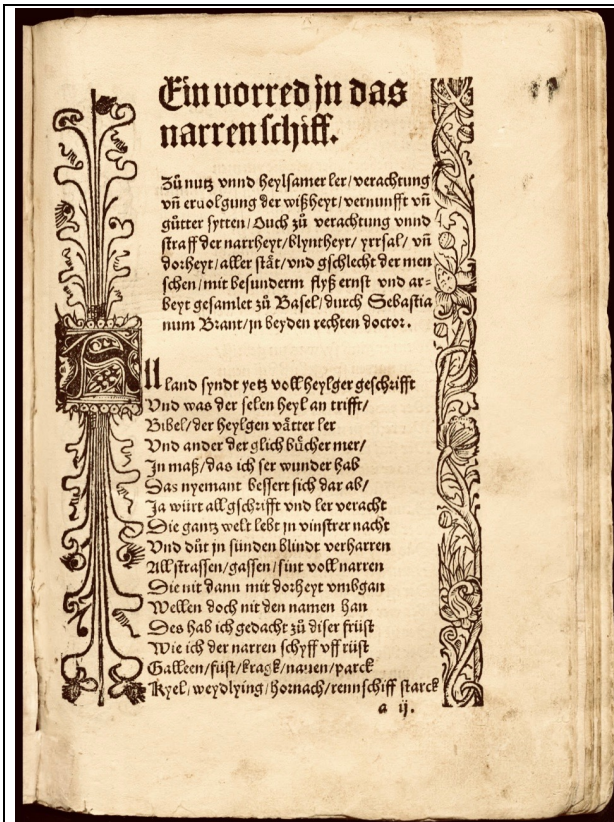 Ein vorred jn das
narren schiff.
Zů nutz vnnd heylsamer ler/verachtung
vñ eruolgung der wißheyt/vernunfft vñ
gůtter sytten/Ouch zů verachtung vnnd
straff der narrheyt/blyntheyt/yrrsal/vñ
dorheyt/aller stät/vnd gschlecht der men
schen/mit besunderm flyß ernst vnd ar⸗
beyt gesamlet zů Basel/durch Sebastia
num Brant/jn beyden rechten doctor.
All land syndt yetz voll heylger geschrifft
Vnd was der selen heyl an trifft/
Bibel/der heylgen vätter ler
Vnd ander der glich bücher mer/
Jn maß/das ich ser wunder hab
Das nyemant bessert sich dar ab/
Ja würt all gschrifft vnd ler veracht
Die gantz welt lebt jn vinstrer nacht
Vnd důt jn sünden blindt verharren
All strassen/gassen/sint voll narren
Die nit dann mit dorheyt vmbgan
Wellen doch nit den namen han
Des hab ich gedacht zů diser früst
Wie ich der narren schyff vff rüst
Galleen/füst/kragk/nauen/parck
Kyel/weydlying/hornach/rennschiff starck
a ij.